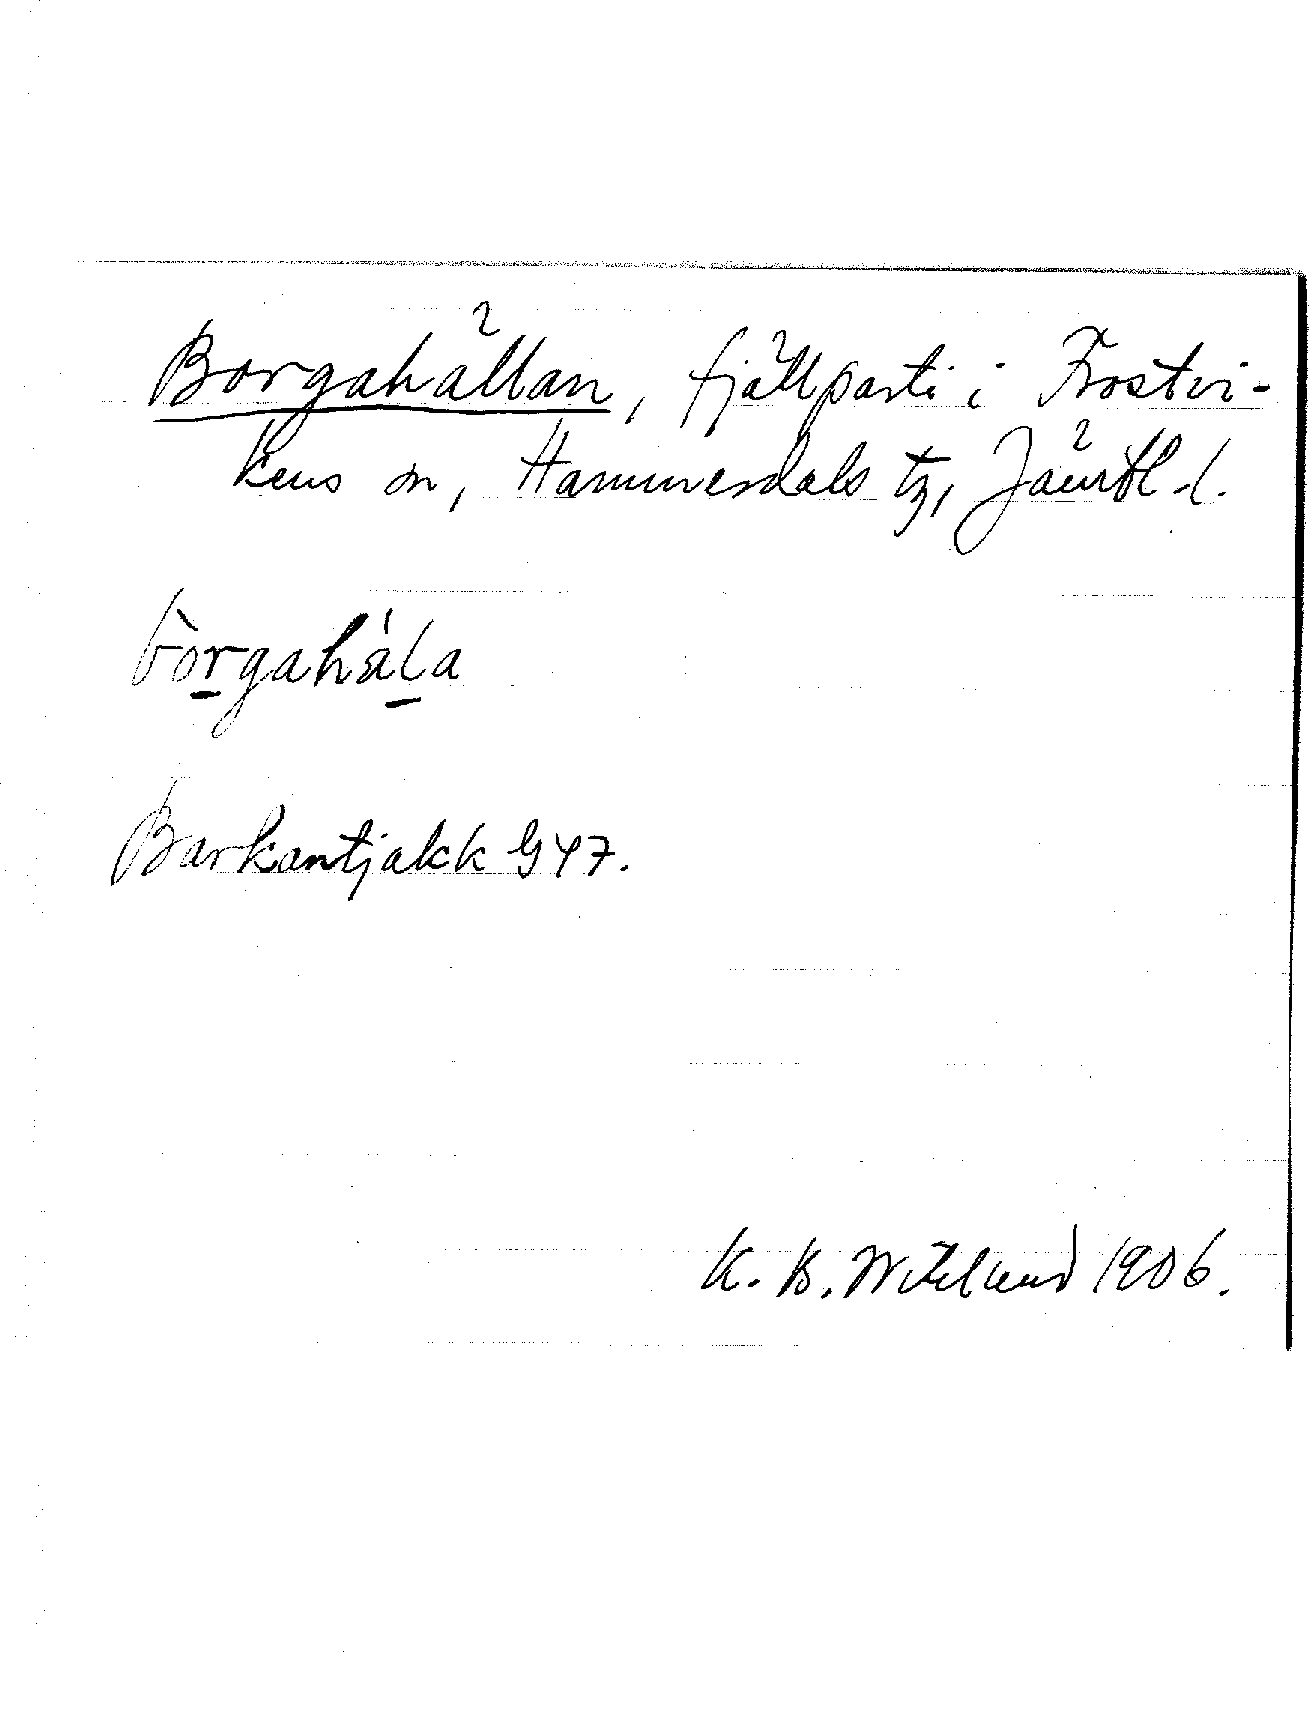 Borgahällan, fjällparti i Frostvi-
kens sn, Hammerdals tg, Jämtl. l.
bòrgahála
Barkantjakk G 47.
K. B. Wiklund 1906.